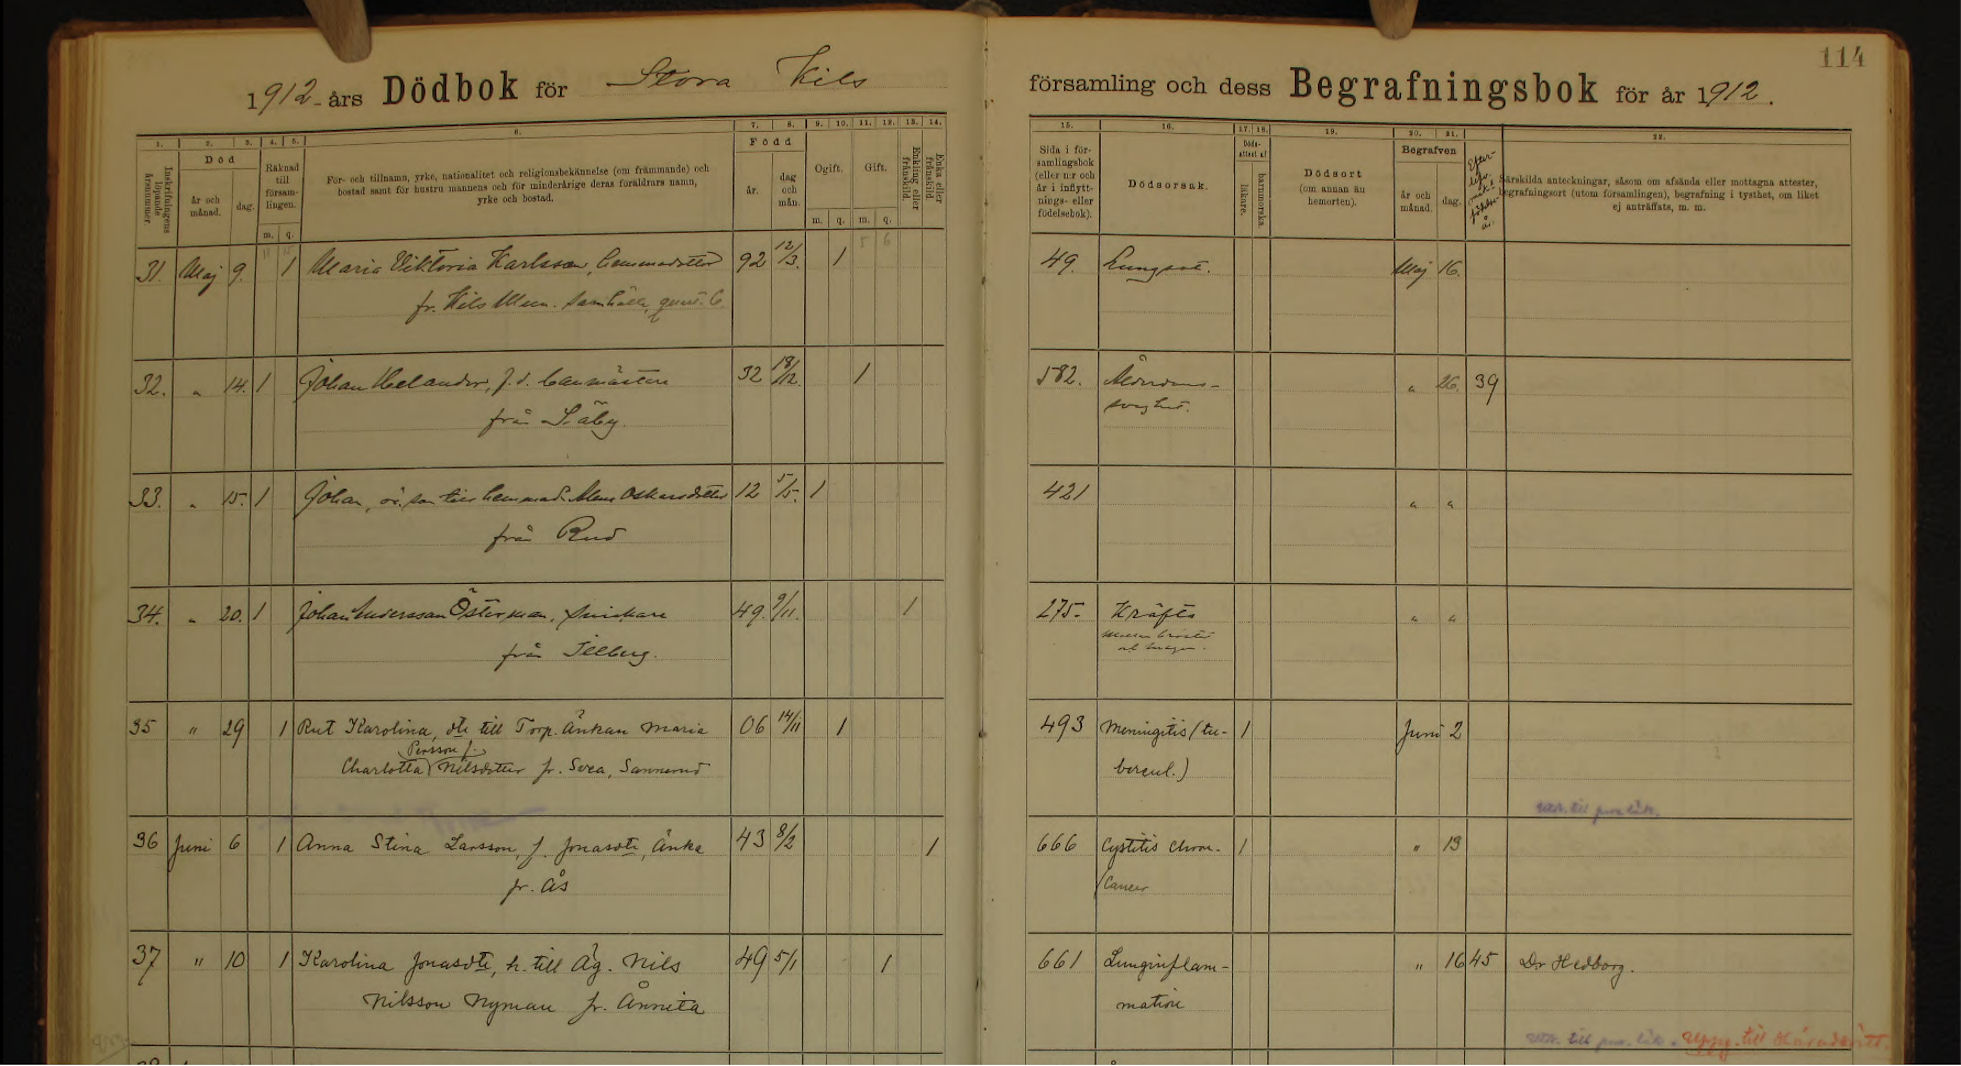 114
1912-års Dödbok för Stora Kils
församling och dess Begrafningsbok för år 1912.
1. 2. 3. 4. 5. 6. 7. 8. 9. 10. 11. 12. 13. 14.
Inskrifningens löpande årsnummer.
Död
år och månad.
dag.
Räknad till församlingen.
m. q.
För- och tillnamn, yrke, nationalitet och religionsbekännelse (om främmande) och
bostad samt för hustru mannens och för minderårige deras föräldrars namn,
yrke och bostad.
Född
år.
dag och mån.
Ogift.
m. q.
Gift.
m. q.
Enkling eller frånskild.
Enka eller frånskild.
15. 16. 17. 18. 19. 20. 21. 22.
Sida i för-
samlingsbok
(eller n:r och
år i inflytt-
nings- eller
födelsebok).
Dödsorsak.
Döds-
attest af
läkare.
barnmorska.
Dödsort
(om annan än
hemorten).
Begrafven
år och månad.
dag.
Särskilda anteckningar, såsom om afsända eller mottagna attester,
begrafningsort (utom församlingen), begrafning i tysthet, om liket
ej anträffats, m. m.
31. Maj 9. 1 Maria Viktoria Karlsson, hemmadotter 92 12/3. 1 49. Lungsot. Maj 16.
fr. Kils Mun. samhälle,
32. " 14. 1 Johan Helander, f. d. banmästare 32 18/12. 1 582. Ålderdoms- " 26. 39
från Säby. svaghet.
33. " 15. 1 Johan, oä. son till hemmad. Oskarsdotter 12 5/5. 1 421 " "
från Rud
34. " 20. 1 Johan Andersson Österman, snickare 49. 9/11. 1 275. Kräfta " "
från Illberg.
35 " 29 1 Rut Karolina, dtr till Torp. Änkan Maria 06 14/11 1 493 Meningitis (tu- 1 Juni 2
Persson f.
Charlotta Nilsdotter fr. Svea, Sannerud bercul.)
36 Juni 6 1 Anna Stina Larsson, f. Jonasdtr, Änka 43 8/2 1 666 Cystitis chron. 1 " 13
fr. Ås Cancer
37 " 10 1 Karolina Jonasdtr, h. till Äg. Nils 49 5/1 1 661 Lunginflam- " 16 45 Dr Hedborg.
Nilsson Nyman fr. Ånnita mation
till Häradsrätt.